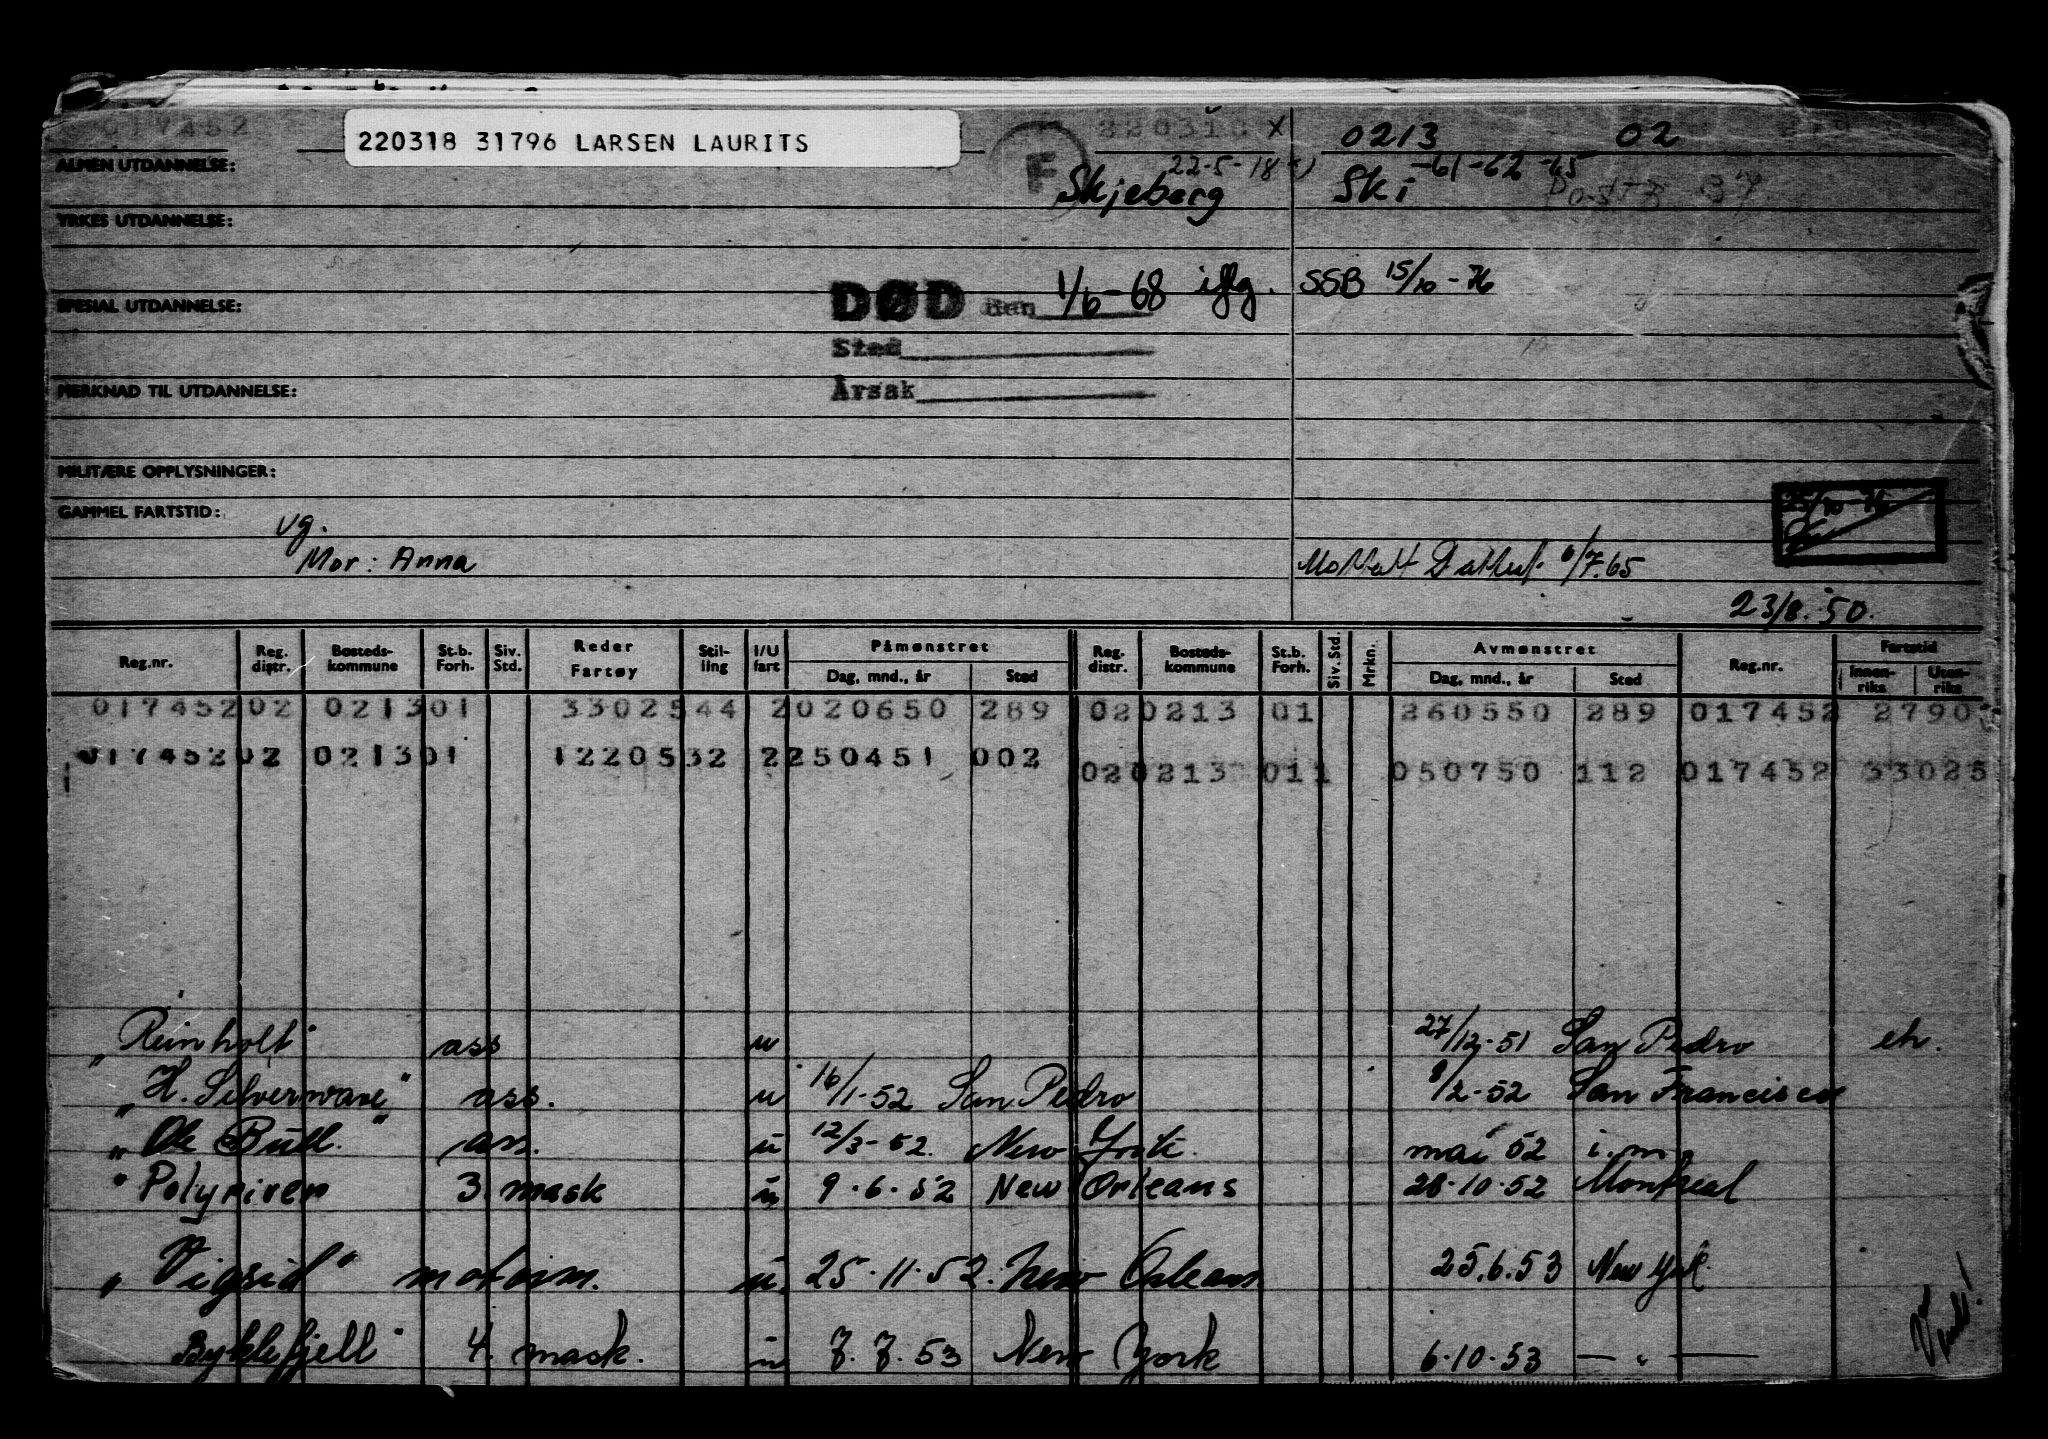 017452
220318 31796 LARSEN LAURITS
F
220318 x
0213 02
ALMEN UTDANNELSE:
22-5-18 x)
Skjeberg
Ski -61-62-65
YRKES UTDANNELSE:
SPESIAL UTDANNELSE:
DØD den 1/6-68 iflg. SSB 15/10-76
Sted
Årsak
MERKNAD TIL UTDANNELSE:
MILITÆRE OPPLYSNINGER:
25/10-76
GAMMEL FARTSTID:
vg.
Mor: Anna
6/7.65
23/8.50.
Reg.nr. Reg. distr. Bosteds-kommune St.b. Forh. Siv. Std. Reder Fartøy Stil-ling I/U fart Påmønstret Dag, mnd., år Sted Reg. distr. Bosteds-kommune St.b. Forh. Siv. Std. Mrkn. Avmønstret Dag, mnd., år Sted Reg.nr. Fartstid Innen-riks Uten-riks
017452 02 0213 01 33025 44 2 020650 289 02 0213 01 260550 289 017452 2790
017452 02 0213 01 12205 32 2 250451 002
02 0213 01 1 050750 112 017452 33025
"Reinholt" ass u 27/12-51 San Pedro eh.
"H. Silverwave" ass. u 16/1-52 San Pedro 8/2-52 San Francisco
"Ole Bull" ass. u 12/3-52. New York. mai 52 i.m.
"Polyriver 3 mask u 9.6.52 New Orleans 28.10.52 Montreal
"Vigsid" motorm. u. 25.11.52. New Orleans 25.6.53 New York.
Byklefjell" 4. mask. u 7.7.53 New York 6.10.53 — " —